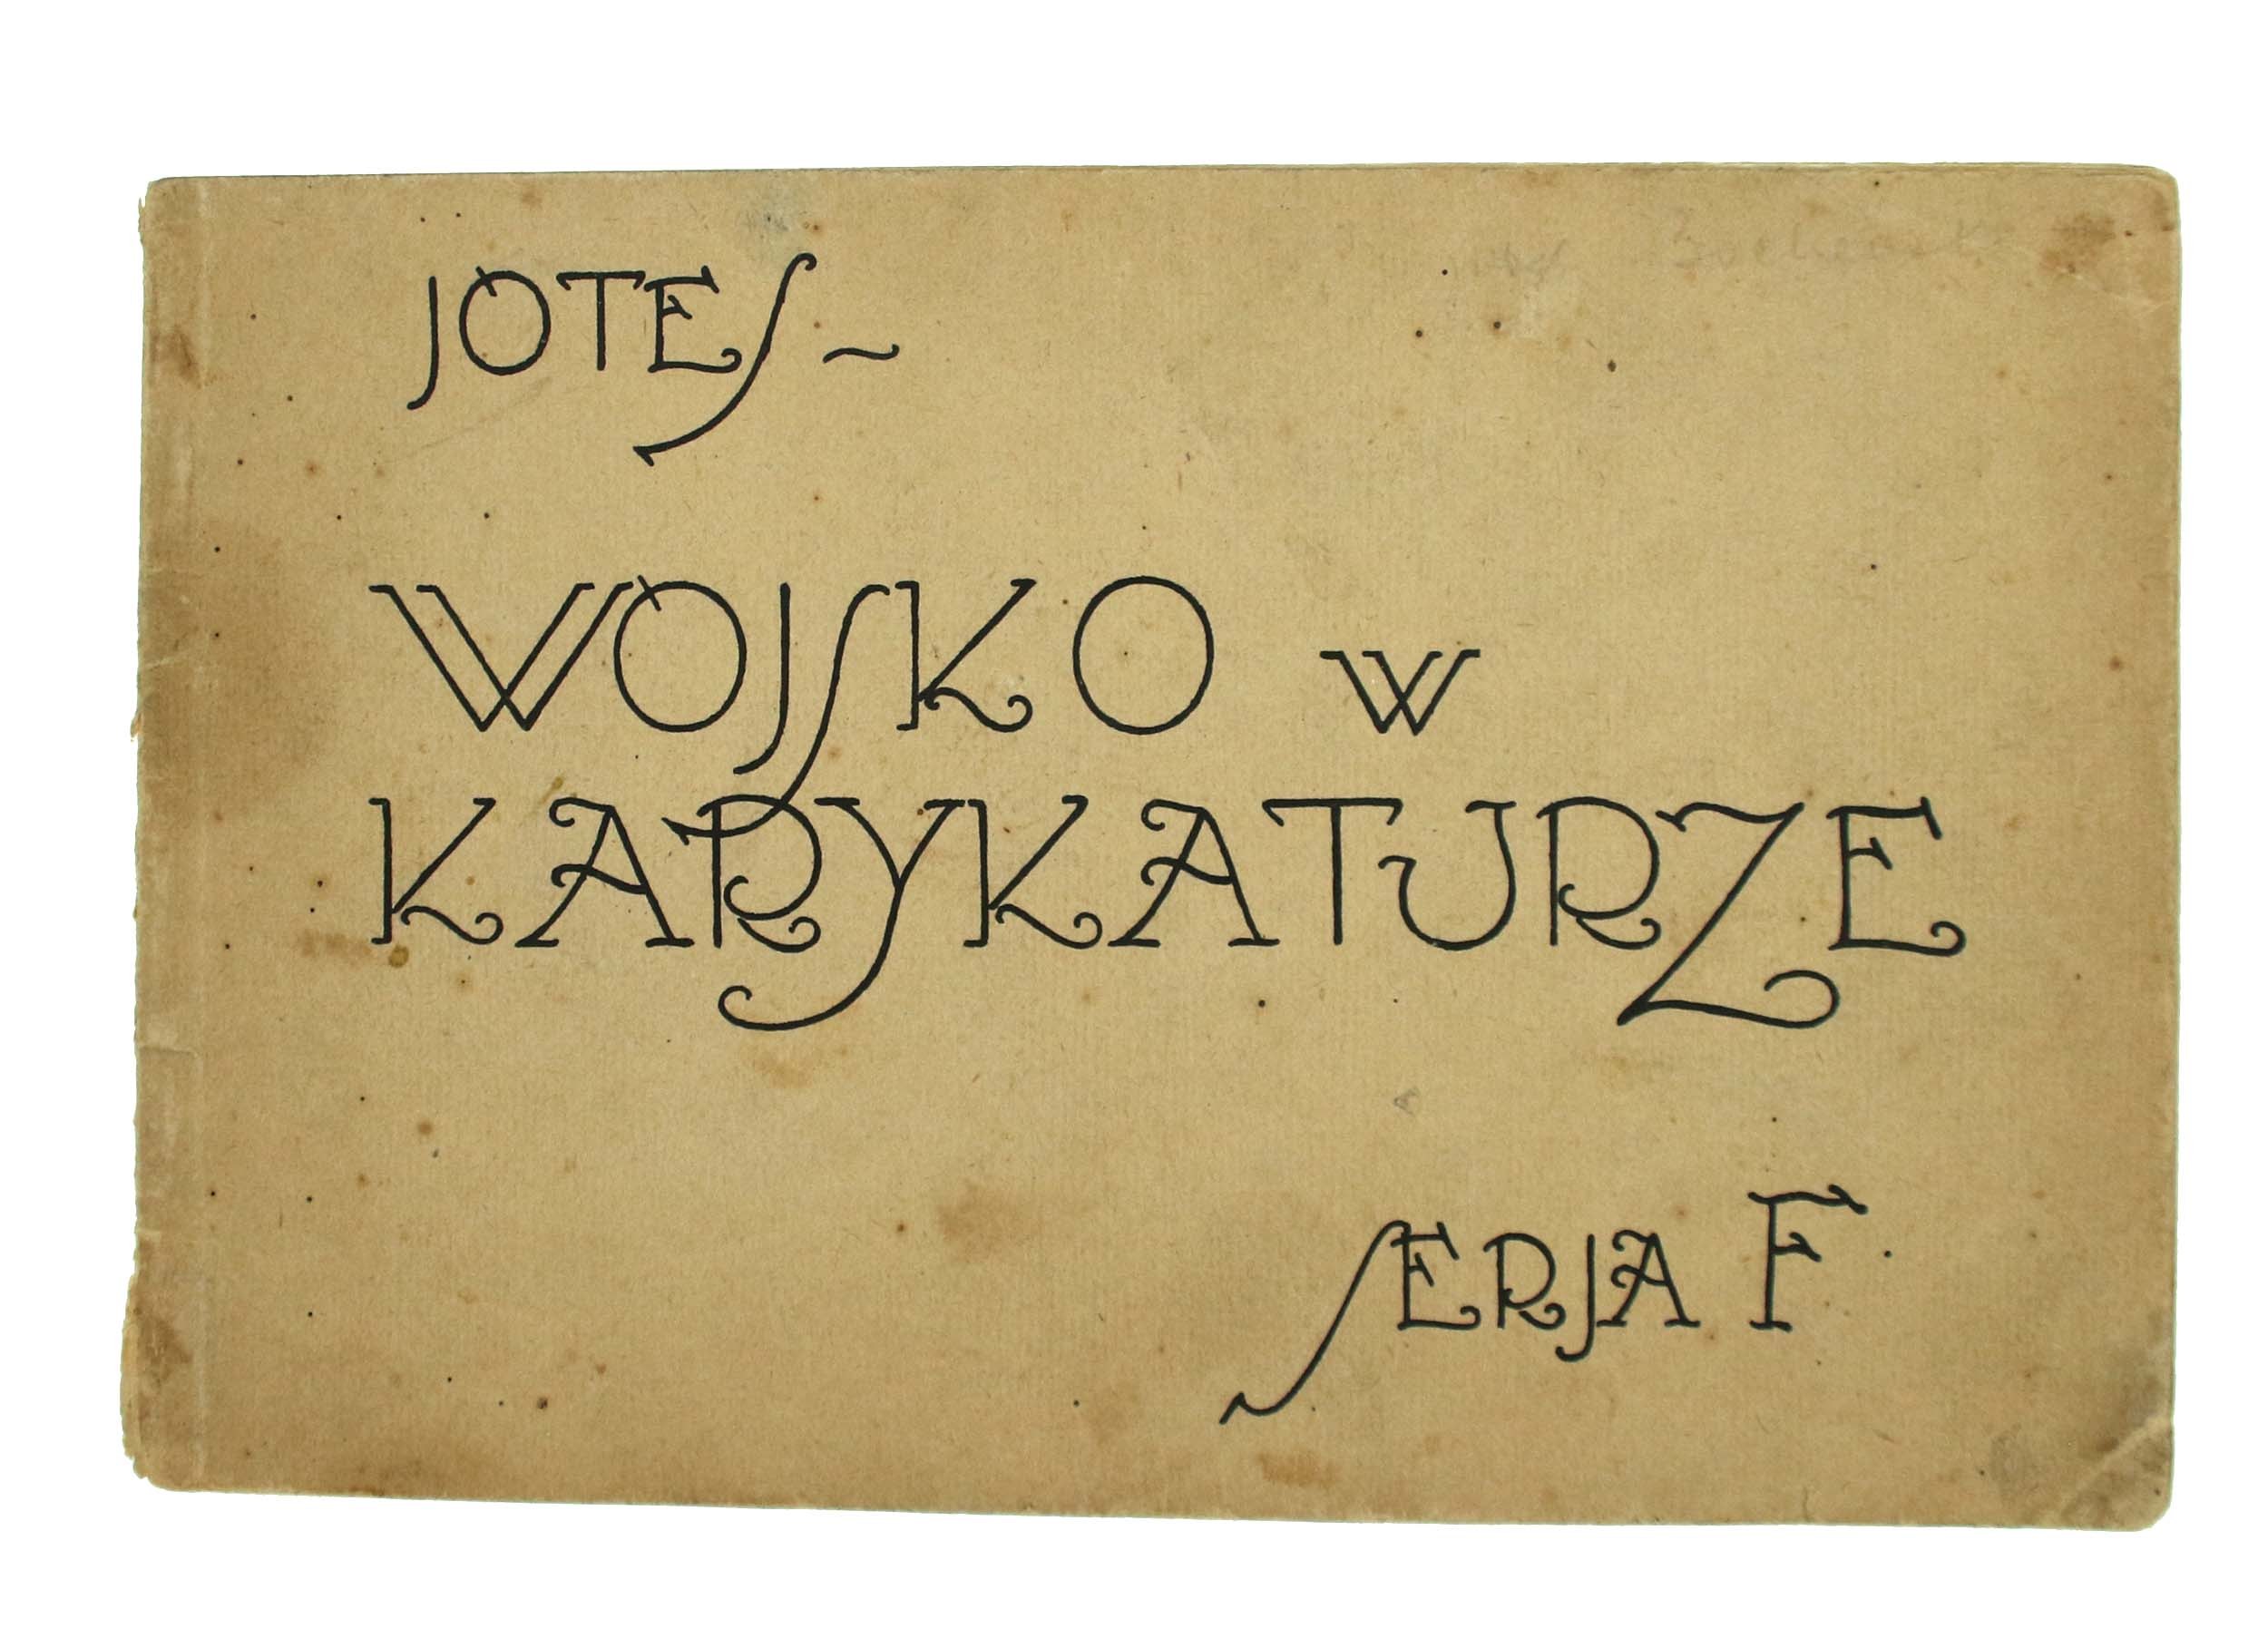 JOTES ~
WOJSKO w
KARYKATURZE
SERJA F